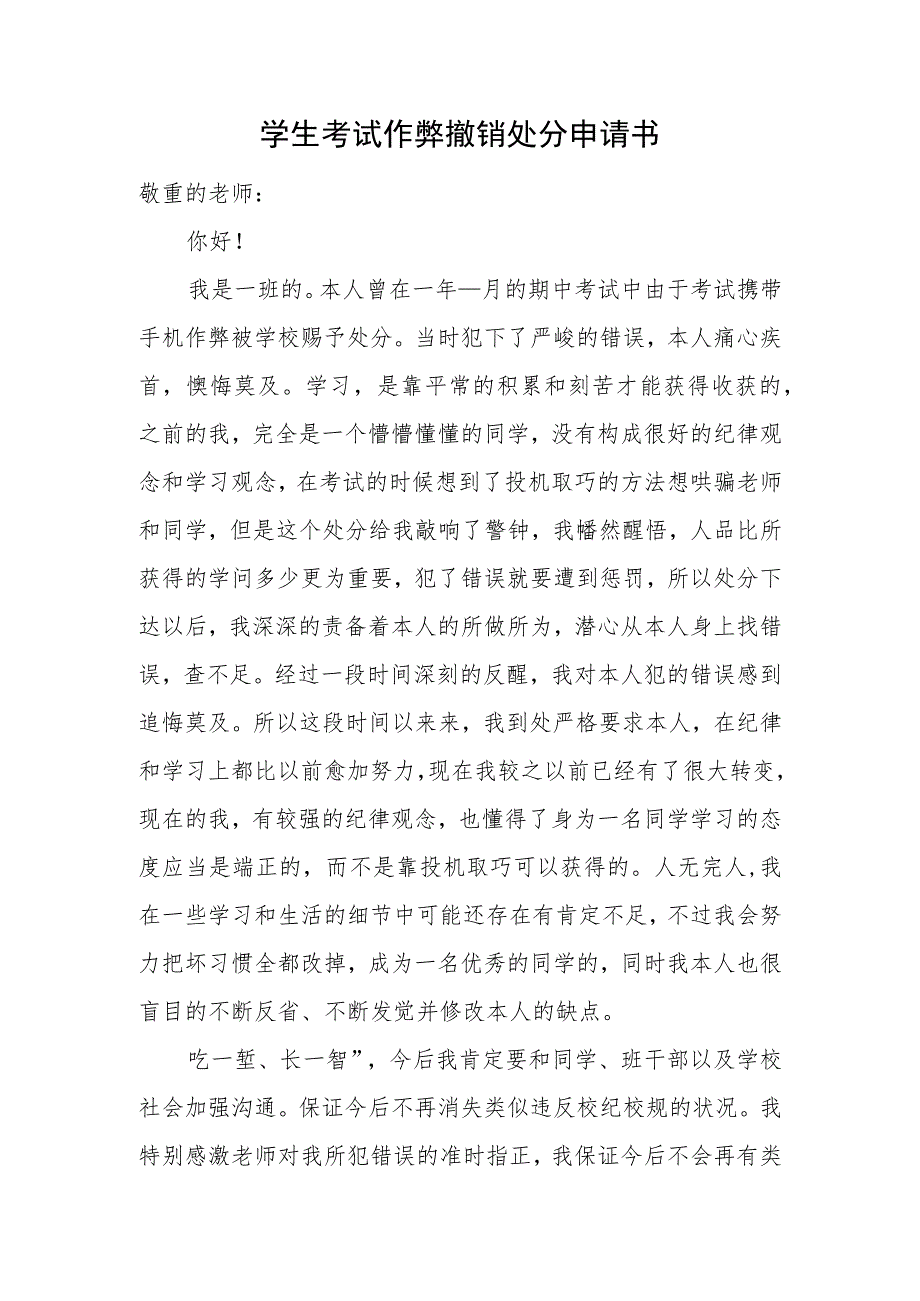 学生考试作弊撤销处分申请书
敬重的老师：
你好！
我是一班的。本人曾在一年—月的期中考试中由于考试携带
手机作弊被学校赐予处分。当时犯下了严峻的错误，本人痛心疾
首，懊悔莫及。学习，是靠平常的积累和刻苦才能获得收获的，
之前的我，完全是一个懵懵懂懂的同学，没有构成很好的纪律观
念和学习观念，在考试的时候想到了投机取巧的方法想哄骗老师
和同学，但是这个处分给我敲响了警钟，我幡然醒悟，人品比所
获得的学问多少更为重要，犯了错误就要遭到惩罚，所以处分下
达以后，我深深的责备着本人的所做所为，潜心从本人身上找错
误，查不足。经过一段时间深刻的反醒，我对本人犯的错误感到
追悔莫及。所以这段时间以来来，我到处严格要求本人，在纪律
和学习上都比以前愈加努力,现在我较之以前已经有了很大转变，
现在的我，有较强的纪律观念，也懂得了身为一名同学学习的态
度应当是端正的，而不是靠投机取巧可以获得的。人无完人,我
在一些学习和生活的细节中可能还存在有肯定不足，不过我会努
力把坏习惯全都改掉，成为一名优秀的同学的，同时我本人也很
盲目的不断反省、不断发觉并修改本人的缺点。
吃一堑、长一智”，今后我肯定要和同学、班干部以及学校
社会加强沟通。保证今后不再消失类似违反校纪校规的状况。我
特别感激老师对我所犯错误的准时指正，我保证今后不会再有类